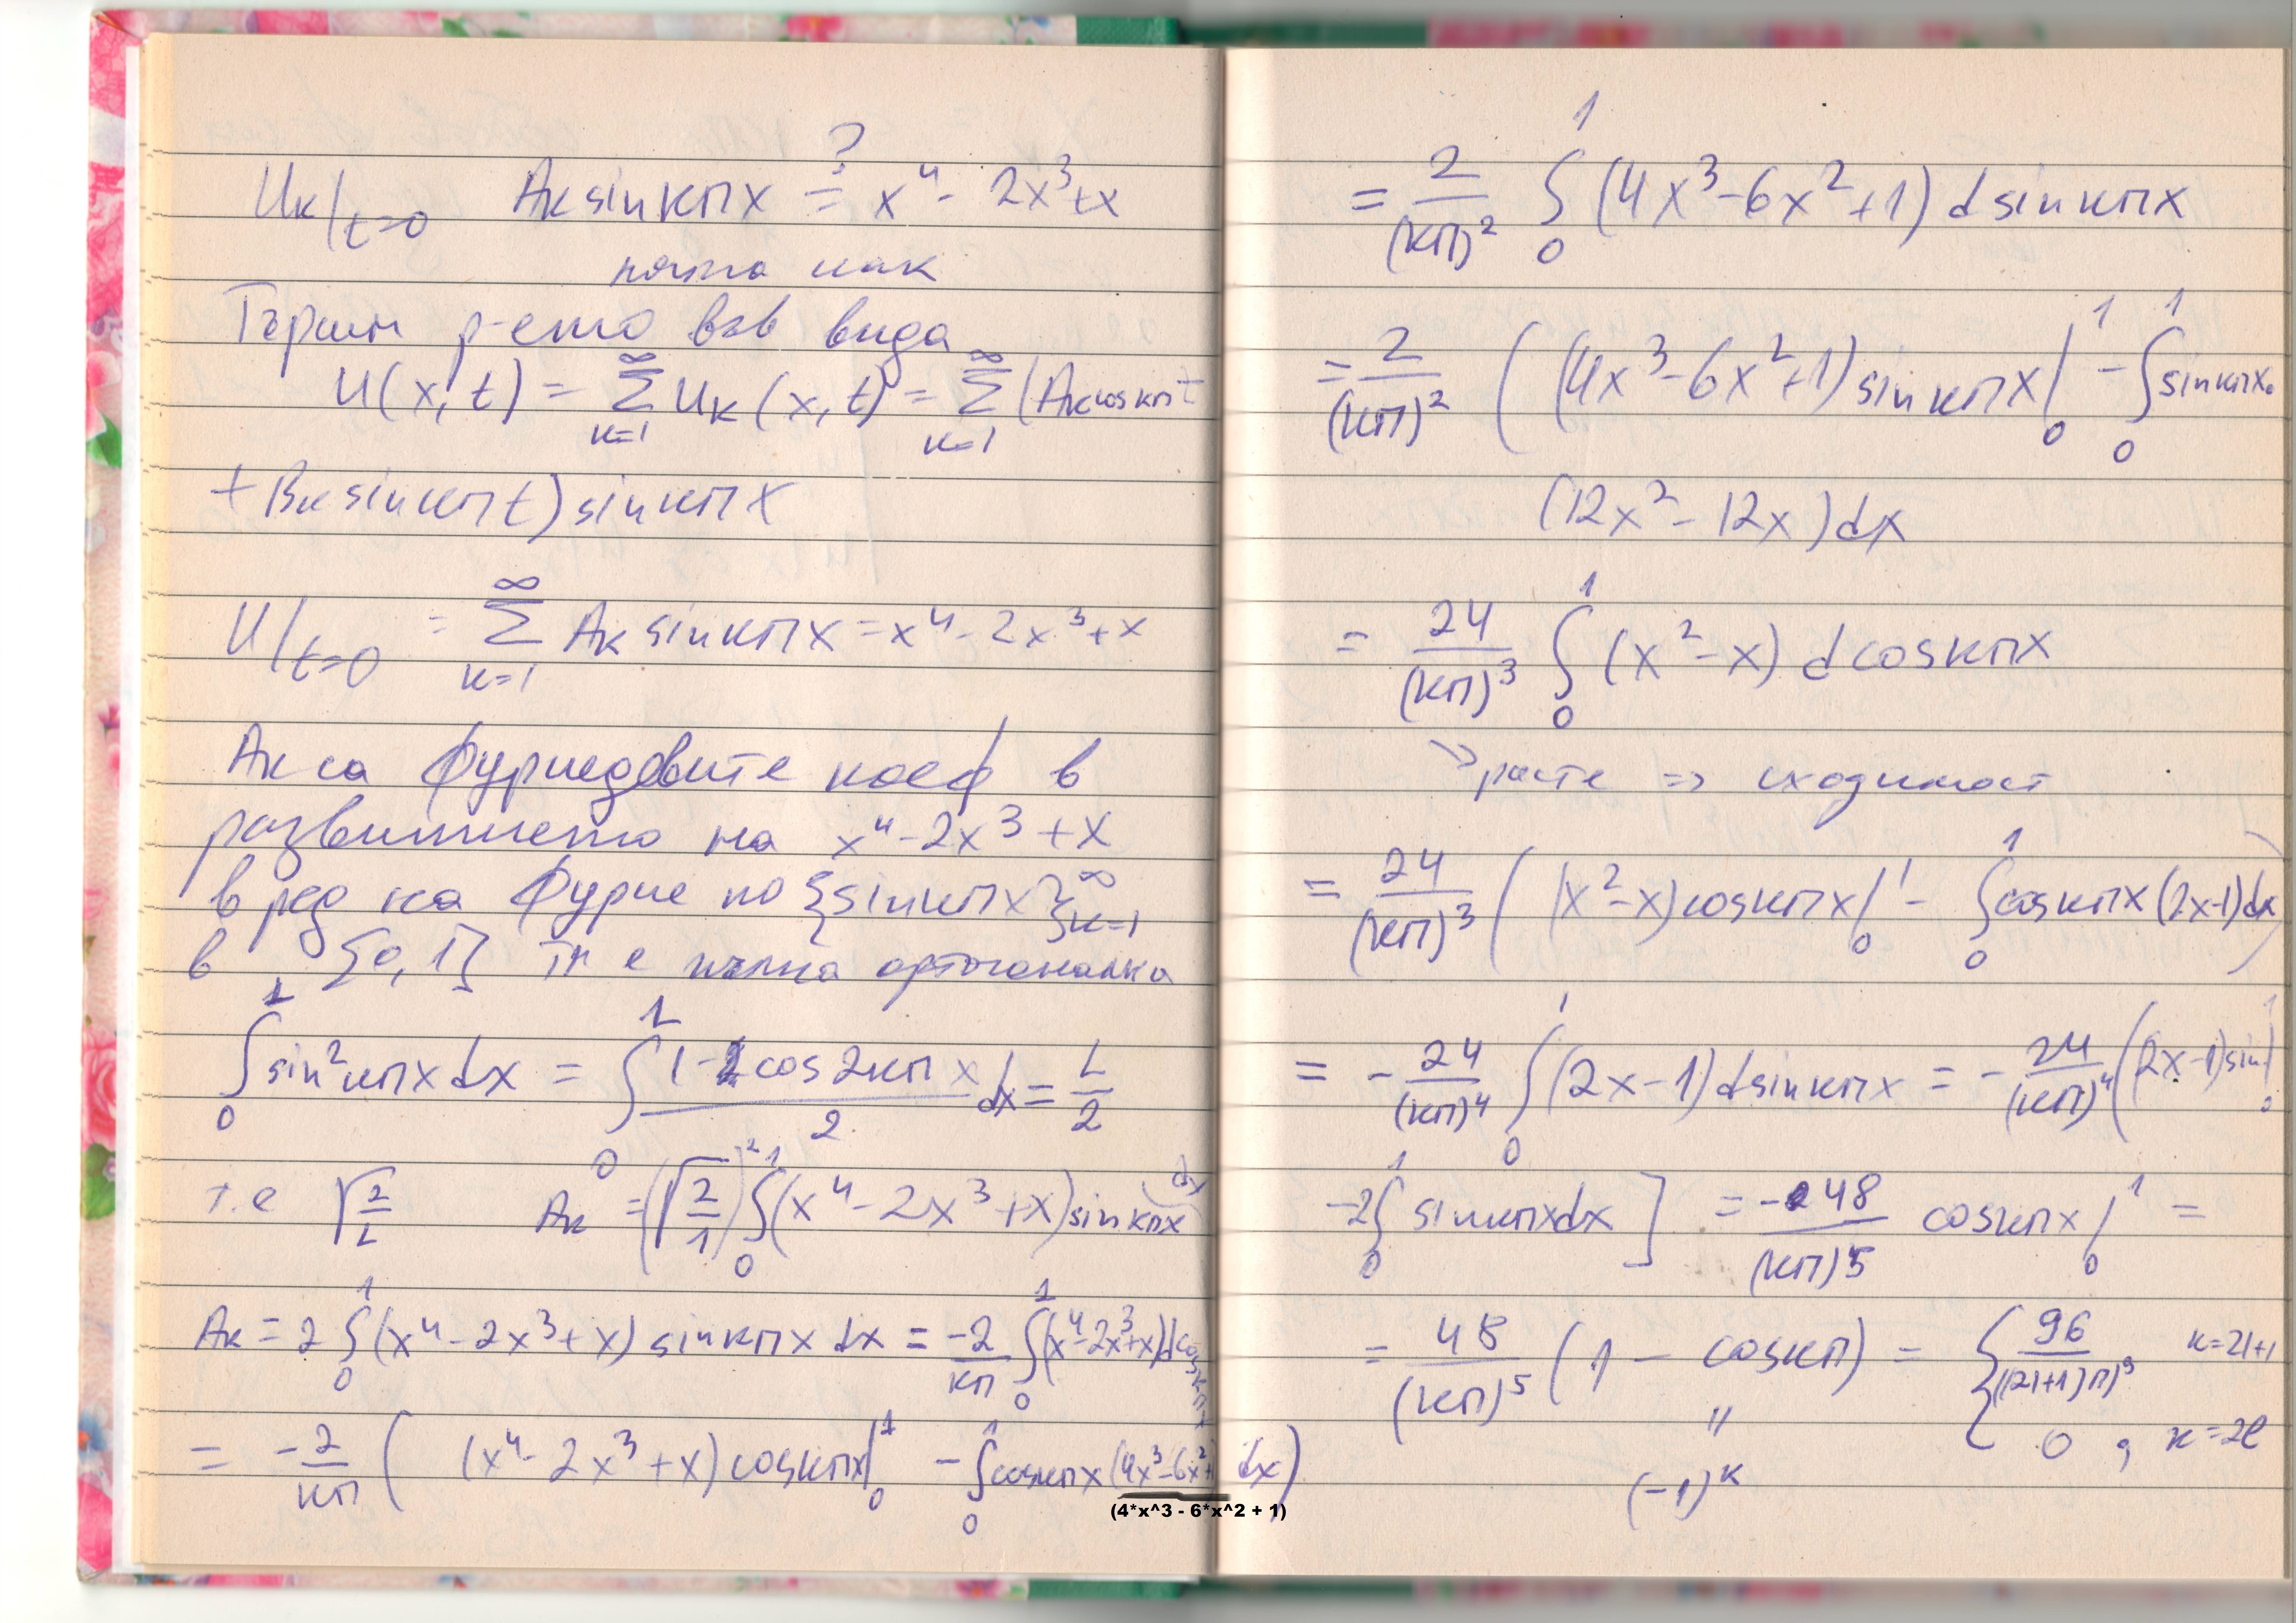 Uк|t=0 Aк sin кπx =? x⁴ - 2x³ + x
Търсим р-ето във вида
U(x,t) = ∞Σк=1 Uк(x,t) = ∞Σк=1 (Aк cos кπt
+ Bк sin кπt) sin кπx
U|t=0 = ∞Σк=1 Aк sin кπx = x⁴ - 2x³ + x
Aк са Фуриедовите коеф в
развитието на x⁴ - 2x³ + x
в ред на Фурие по {sin кπx}∞к=1
в [0,1] тя е пълна ортогонална
∫₀¹ sin² кπx dx = ∫₀¹ (1 - cos 2кπx)/2 dx = L/2
т.е √(2/L) Aк = (√(2/1))² ∫₀¹ (x⁴ - 2x³ + x) sin кπx dx
Aк = 2 ∫₀¹ (x⁴ - 2x³ + x) sin кπx dx = -2/кπ ∫₀¹ (x⁴ - 2x³ + x) d cos кπx
= -2/кπ ( (x⁴ - 2x³ + x) cos кπx |₀¹ - ∫₀¹ cos кπx (4x³ - 6x² + 1) dx)
(4*x^3 - 6*x^2 + 1)
= 2/(кπ)² ∫₀¹ (4x³ - 6x² + 1) d sin кπx
= 2/(кπ)² ( (4x³ - 6x² + 1) sin кπx |₀¹ - ∫₀¹ sin кπx
(12x² - 12x) dx
= 24/(кπ)³ ∫₀¹ (x² - x) d cos кπx
расте => сходимост
= 24/(кπ)³ ( (x² - x) cos кπx |₀¹ - ∫₀¹ cos кπx (2x-1) dx )
= - 24/(кπ)⁴ ∫₀¹ (2x-1) d sin кπx = - 24/(кπ)⁴ ( (2x-1) sin |₀¹
-2 ∫₀¹ sin кπx dx ] = -48/(кπ)⁵ cos кπx |₀¹ =
= 48/(кπ)⁵ (1 - cos кπ) = { 96/((2l+1)π)⁵ к=2l+1
0, к=2l
"
(-1)ᵏ